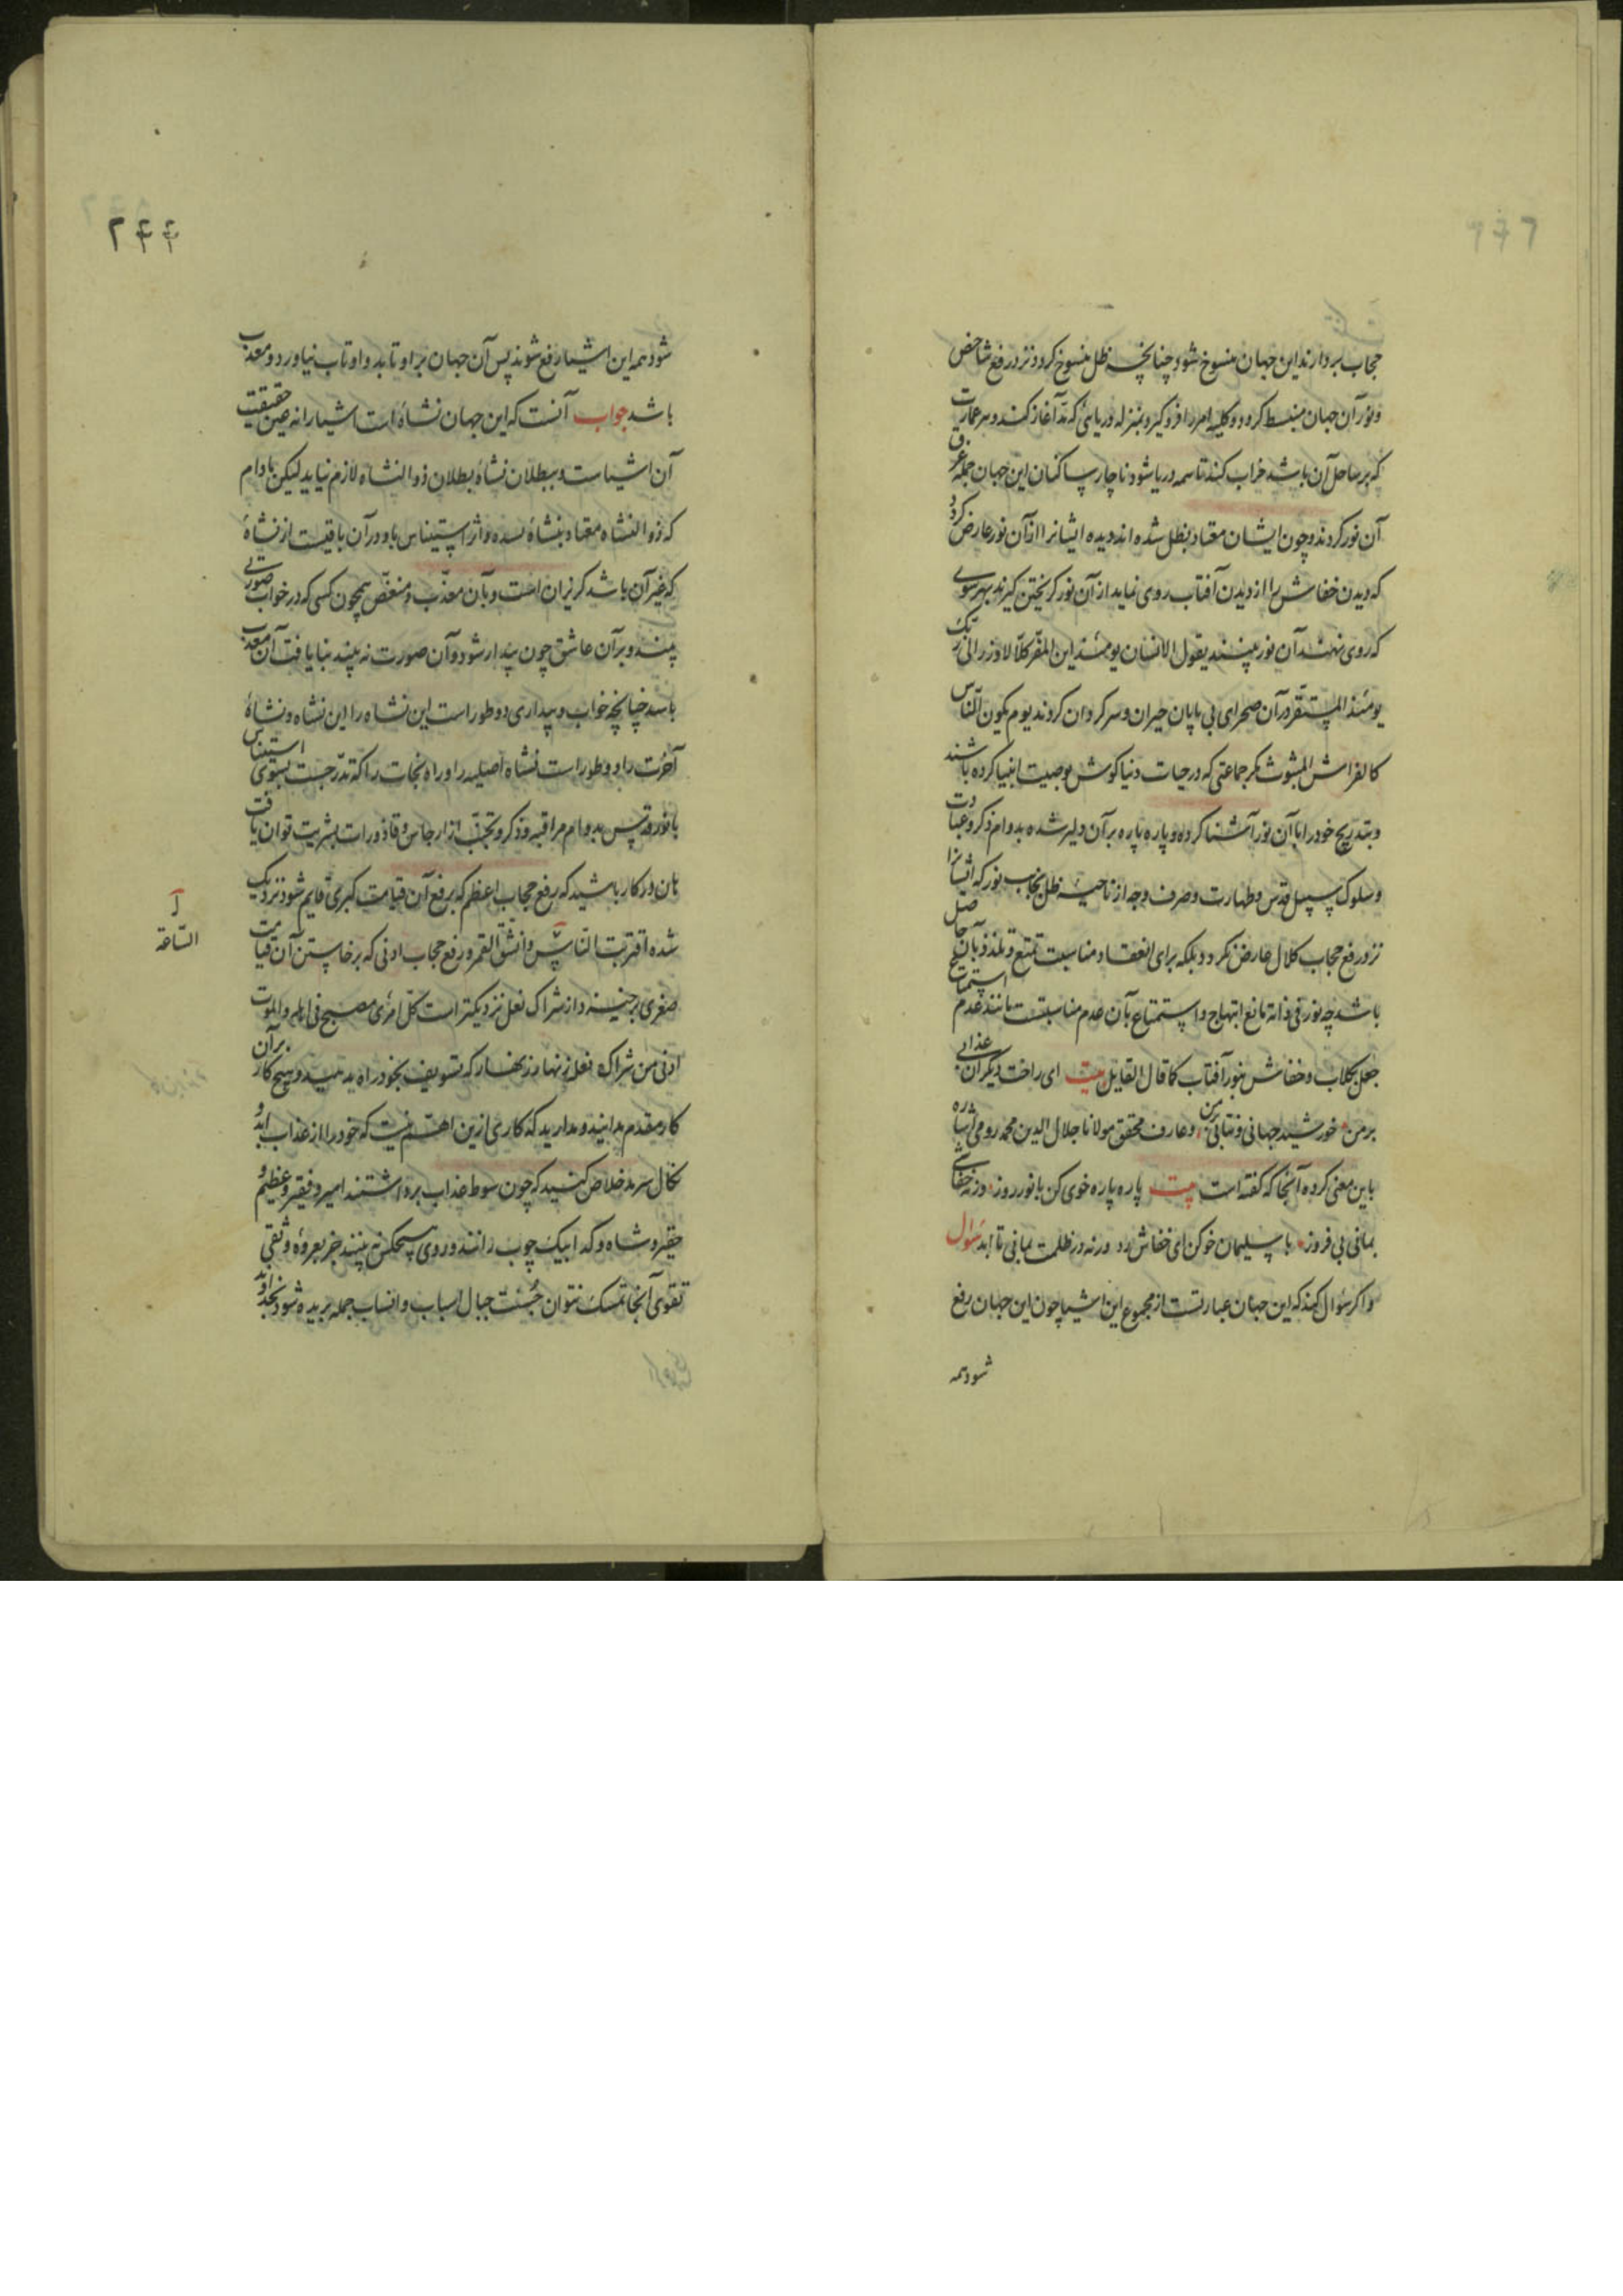 حجاب بردارند این جهان منسوخ شود چنانچه ظل منسوخ کردد نزد رفع شاخص
و نور آن جهان منبسط کردد و کلیه امر را فرو کیرد بمنزله دریائی که مد آغاز کند و هر عمارت
که بر ساحل آن باشد خراب کند تا همه دریا شود ناچار ساکنان این جهان جمله غرق
آن نور کردند و چون ایشان معتاد بظل شده اند دیده ایشانرا از آن نور عارض کردد
که دیدن خفاش را از دیدن آفتاب روی نماید از آن نور کریختن کیرند بهر سوی
که روی نهند آن نور بینند یقول الانسان یومئذ این المفر کلا لا وزر الی ربک
یومئذ المستقر در آن صحرای بی پایان حیران و سرکردان کردند یوم یکون الناس
کالفراش المبثوث مکر جماعتی که در حیات دنیا کوش بوصیت انبیا کرده باشند
و بتدریج خود را با آن نور آشنا کرده و پاره پاره بر آن دلیر شده بدوام ذکر و عبادت
و سلوک سبیل قدس و طهارت و صرف وجه از ناحیه ظل بجانب نور که ایشانرا
نزد رفع حجاب کلال عارض نکردد بلکه برای انعقاد مناسبت تمتع و تلذذ بآن حاصل
باشد چه نور فی ذاته مانع ابتهاج و استمتاع بآن عدم مناسبتست مانند عدم استمتاع
جعل بکلاب و خفاش بنور آفتاب کما قال القایل بیت ای راحت دیکران عذابی
بر من خورشید جهانی و نتابی بر من و عارف محقق مولانا جلال الدین محمد رومی اشاره
باین معنی کرده آنجا که کفته است بیت پاره پاره خوی کن با نور روز ورنه خفاشی
بمانی بی فروز با سلیمان خو کن ای خفاش رد ورنه در ظلمت بمانی تا ابد سؤال
و اکر سؤال کند که این جهان عبارتست از مجموع این اشیا چون این جهان رفع
شود همه
۲۴۴
شود همه این اشیا رفع شوند پس آن جهان بر او تابد و او تاب نیاورد و معذب
باشد جواب آنست که این جهان نشاۀ است اشیا را نه عین حقیقت
آن اشیاست و ببطلان نشاۀ بطلان ذو النشاه لازم نیاید لیکن مادام
که ذو النشاه معتاد بنشاۀ شده و اثر استیناس باو در آن باقیست از نشاۀ
که غیر آن باشد کریزان است و بآن معذب و منغص همچون کسی که در خواب صورتی
بیند و بر آن عاشق چون بیدار شود و آن صورت نه بیند بنا یافت آن معذب
باشد چنانچه خواب و بیداری دو طور است این نشاه را این نشاه و نشاۀ
آخرت را دو طور است نشاه اصلیه را و راه نجات را که تدرجست بسوی استیناس
با نور قدس بدوام مراقبه و ذکر و تجنب از ارجاس و قاذورات بشریت توان یافت
هان در کار باشید که رفع حجاب اعظم که برفع آن قیامت کبری قایم شود نزدیک
شده اقتربت الناس وانشق القمر و رفع حجاب ادنی که برخاستن آن قیامت
آ
الساعة
صغری برخیزد از شراک نعل نزدیکتر است کل امرئ مصبح فی اهله والموت
ادنی من شراک نعله زنهار زنهار که تسویف بخود راه مدهید و هیچ کار بر آن
کار مقدم مدانید و مدارید که کاری ازین اهم نیست که خود را از عذاب ابد و
نکال سرمد خلاص کنید که چون سوط عذاب برداشتند امیر و فقیر و عظیم و
حقیر و شاه و کدا بیک چوب رانند و روی هیچکس نه بینند جز بعروۀ وثقی
تقوی آنجا تمسک نتوان جست حبال اسباب و انساب جمله بریده شود بخداوند